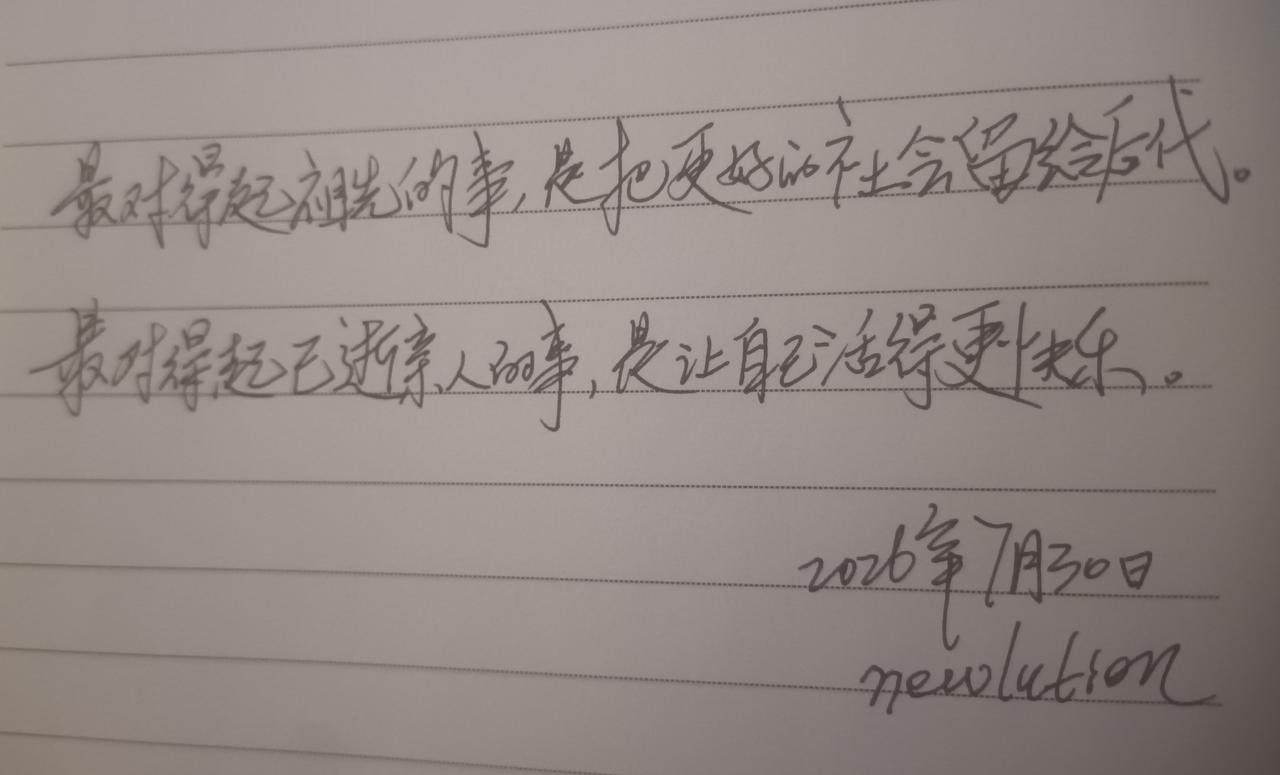 最对得起祖先的事,是把更好的社会留给后代。
最对得起已逝亲人的事,是让自己活得更快乐。
2026年7月30日
newlution